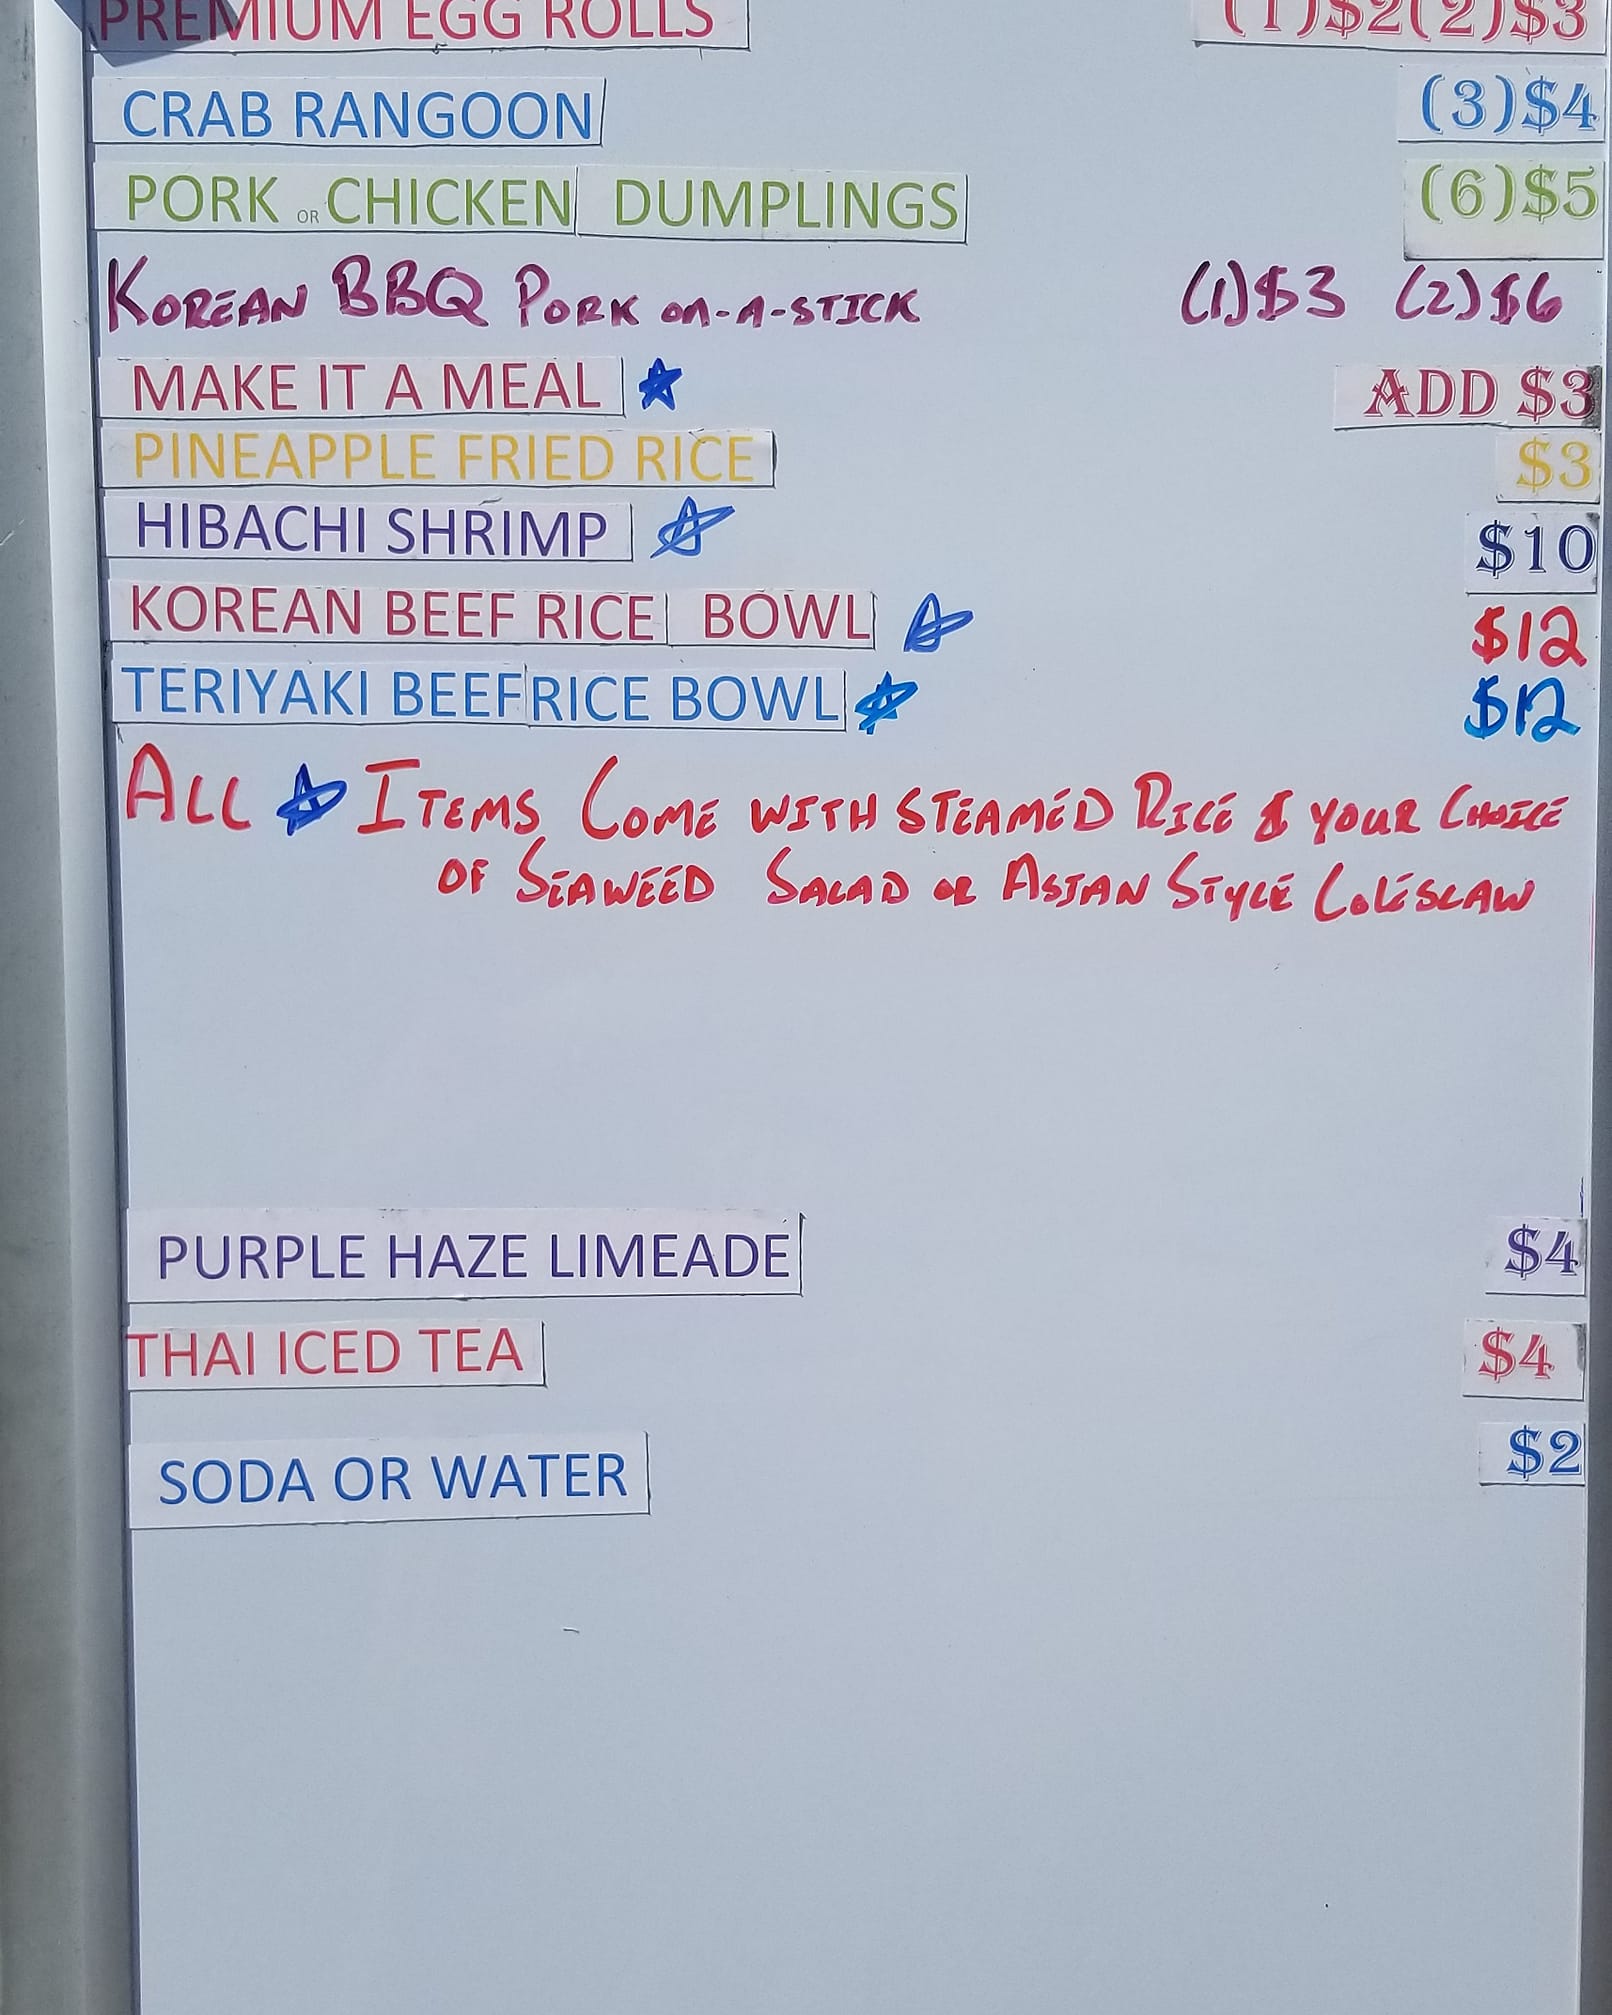 PREMIUM EGG ROLLS (1)$2(2)$3
CRAB RANGOON (3)$4
PORK OR CHICKEN DUMPLINGS (6)$5
KOREAN BBQ PORK ON-A-STICK (1)$3 (2)$6
MAKE IT A MEAL ADD $3
PINEAPPLE FRIED RICE $3
HIBACHI SHRIMP $10
KOREAN BEEF RICE BOWL $12
TERIYAKI BEEF RICE BOWL $12
ALL ITEMS COME WITH STEAMED RICE & YOUR CHOICE
OF SEAWEED SALAD OR ASIAN STYLE COLESLAW
PURPLE HAZE LIMEADE $4
THAI ICED TEA $4
SODA OR WATER $2